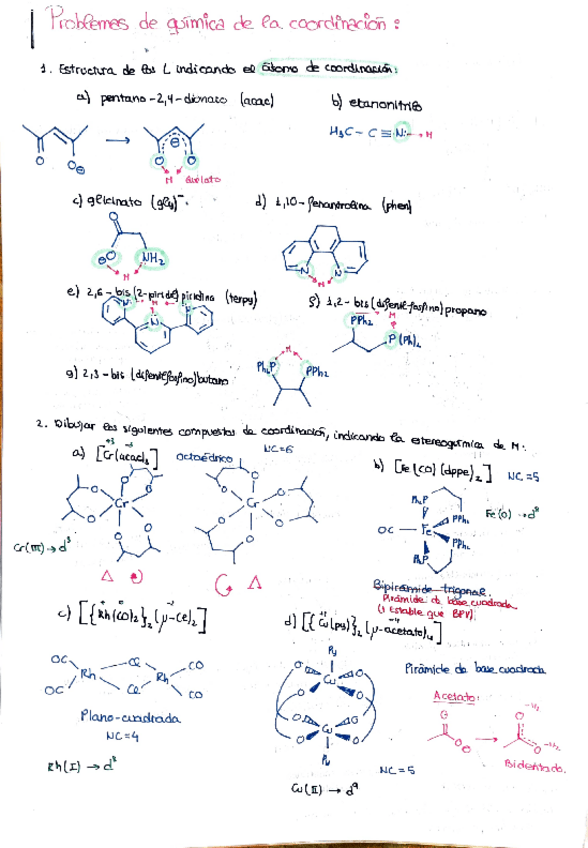 Problemas de química de la coordinación:
1. Estructura de los L indicando el átomo de coordinación:
a) pentano-2,4-dionato (acac)
b) etanonitrilo
H₃C-C≡N:→M
O
O⊖
⊖
O
O
M
quelato
c) glicinato (gly)⁻.
d) 1,10-fenantrolina (phen)
O
⊖O
NH₂
M
N
N
M
e) 2,6-bis(2-piridil)piridina (terpy)
f) 1,2-bis(difenilfosfino)propano
N
M
N
N
PPh₂
M
P(Ph)₂
g) 2,3-bis(difenilfosfino)butano
Ph₂P
M
PPh₂
2. Dibujar los siguientes compuestos de coordinación, indicando la estereoquímica de M:
a) [Cr(acac)₃]
Octaédrico
NC=6
b) [Fe(CO)(dppe)₂]
NC=5
Cr
Cr
Cr(III)→d³
Δ
Δ
Ph₂P
PPh₂
OC
Fe
PPh₂
Ph₂P
Fe(0)→d⁸
Bipirámide trigonal.
Pirámide de base cuadrada
c) [{Rh(CO)₂}₂(μ-Cl)₂]
d) [{Cu(py)}₂(μ-acetato)₄]
OC
Cl
CO
Rh
Rh
OC
Cl
CO
Plano-cuadrada
NC=4
Rh(I)→d⁸
Py
Cu
Cu
Py
Pirámide de base cuadrada
Acetato:
Bidentado.
NC=5
Cu(II)→d⁹